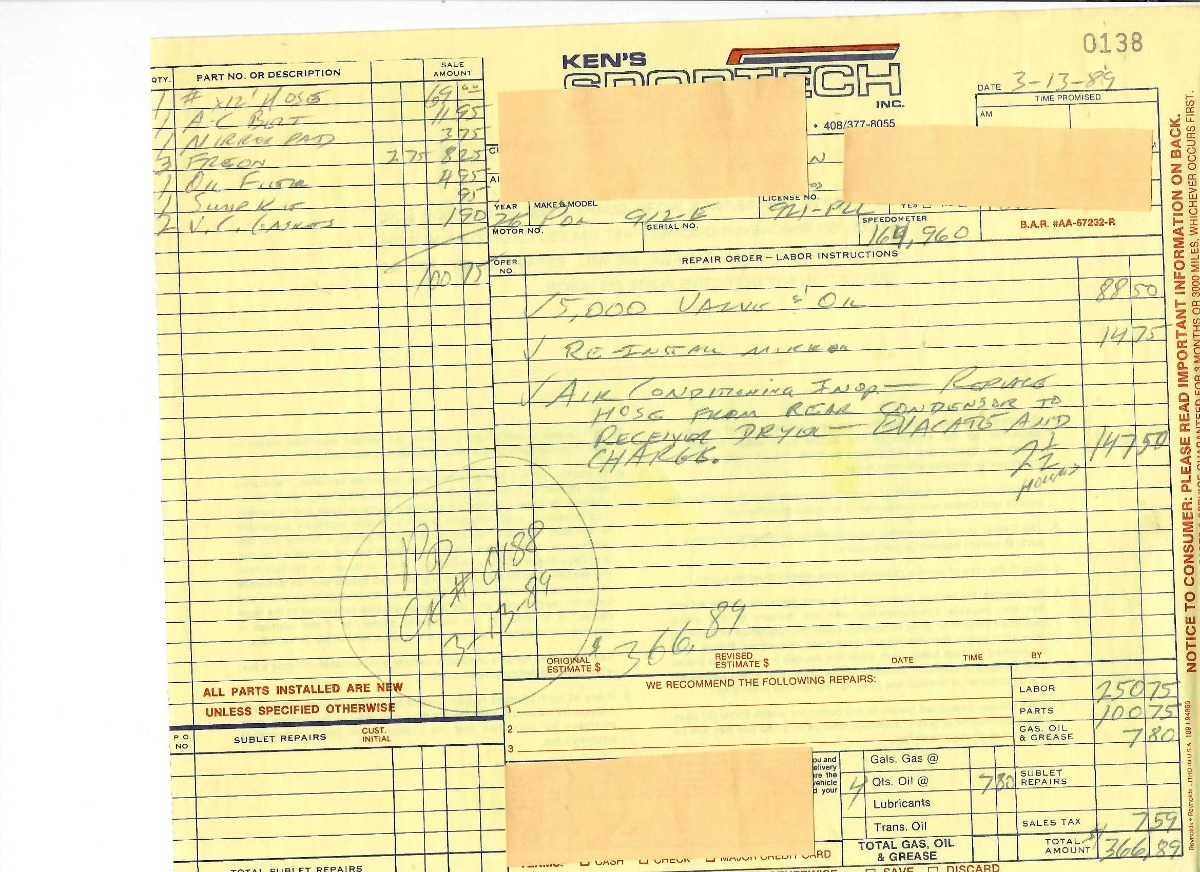 0138
KEN'S
SPORTECH
INC.
• 408/377-8055
DATE 3-13-89
TIME PROMISED
AM
QTY. PART NO. OR DESCRIPTION SALE AMOUNT
1 # x12' HOSE 69
1 A-C BELT 11 95
1 MIRROR PAD 3 75
3 FREON 2.75 8 25
1 OIL FILTER 4 95
1 SUMP KIT 95
2 V.C. GASKETS 1 90
100 75
YEAR MAKE & MODEL LICENSE NO.
POR 912-E 921-
MOTOR NO. SERIAL NO. SPEEDOMETER
169,960
B.A.R. #AA-67232-R
OPER NO. REPAIR ORDER – LABOR INSTRUCTIONS
✓ 5,000 VALVE & OIL 88 50
✓ RE-INSTALL MIRROR 14 75
✓ AIR CONDITIONING INOP — REPLACE
HOSE FROM REAR CONDENSOR TO
RECEIVER DRYER — EVACATE AND
CHARGE. 2 1/2 HOURS 147 50
PD
CK # 0188
3-13-89
ORIGINAL ESTIMATE $ $366.89 REVISED ESTIMATE $ DATE TIME BY
ALL PARTS INSTALLED ARE NEW
UNLESS SPECIFIED OTHERWISE
P O NO. SUBLET REPAIRS CUST. INITIAL
TOTAL SUBLET REPAIRS
WE RECOMMEND THE FOLLOWING REPAIRS:
1
2
3
LABOR 250 75
PARTS 100 75
GAS, OIL & GREASE 7 80
SUBLET REPAIRS
SALES TAX 7 59
TOTAL AMOUNT $366.89
Gals. Gas @
4 Qts. Oil @ 7 80
Lubricants
Trans. Oil
TOTAL GAS, OIL & GREASE
TERMS: ☐ CASH ☐ CHECK ☐ MAJOR CREDIT CARD
☐ SAVE ☐ DISCARD
NOTICE TO CONSUMER: PLEASE READ IMPORTANT INFORMATION ON BACK.
MONTHS OR 3000 MILES, WHICHEVER OCCURS FIRST.